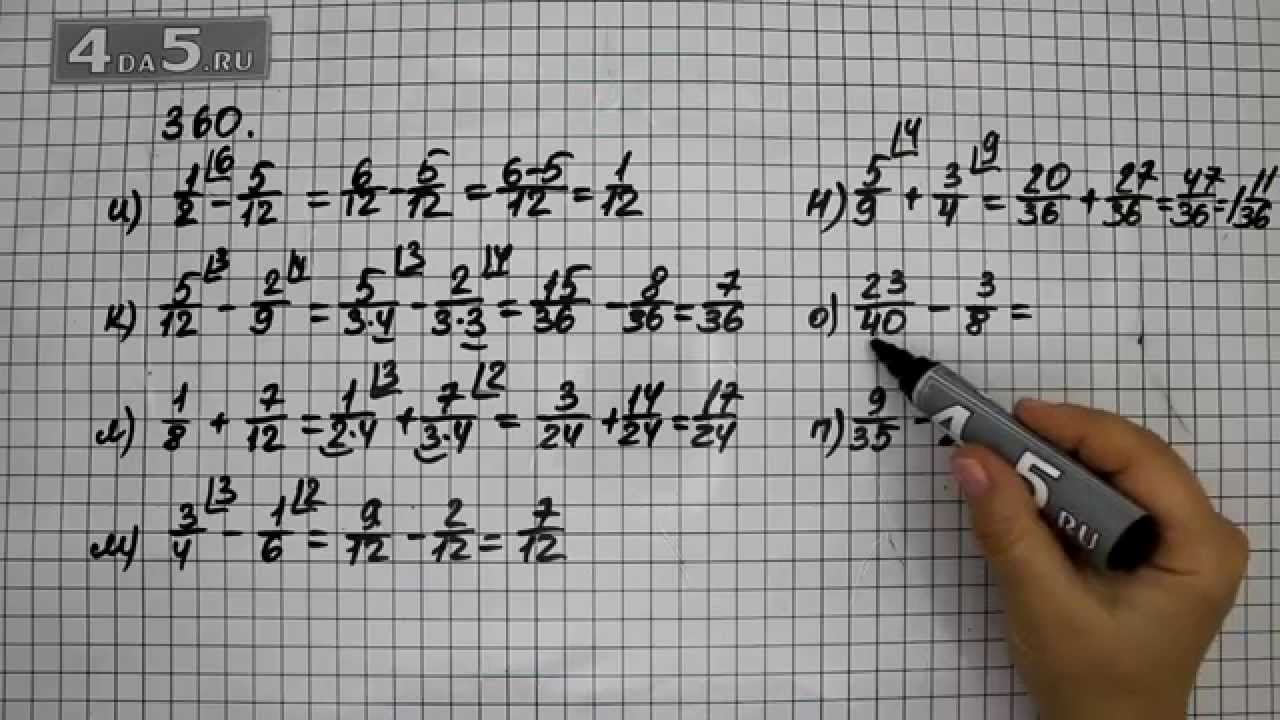 4DA5.RU
360.
и) 1/2 ⌊6 - 5/12 = 6/12 - 5/12 = 6-5/12 = 1/12
к) 5/12 ⌊3 - 2/9 ⌊4 = 5/3·4 ⌊3 - 2/3·3 ⌊4 = 15/36 - 8/36 = 7/36
л) 1/8 + 7/12 = 1/2·4 ⌊3 + 7/3·4 ⌊2 = 3/24 + 14/24 = 17/24
м) 3/4 ⌊3 - 1/6 ⌊2 = 9/12 - 2/12 = 7/12
н) 5/9 ⌊4 + 3/4 ⌊9 = 20/36 + 27/36 = 47/36 = 1 11/36
о) 23/40 - 3/8 =
п) 9/35 -
5.RU